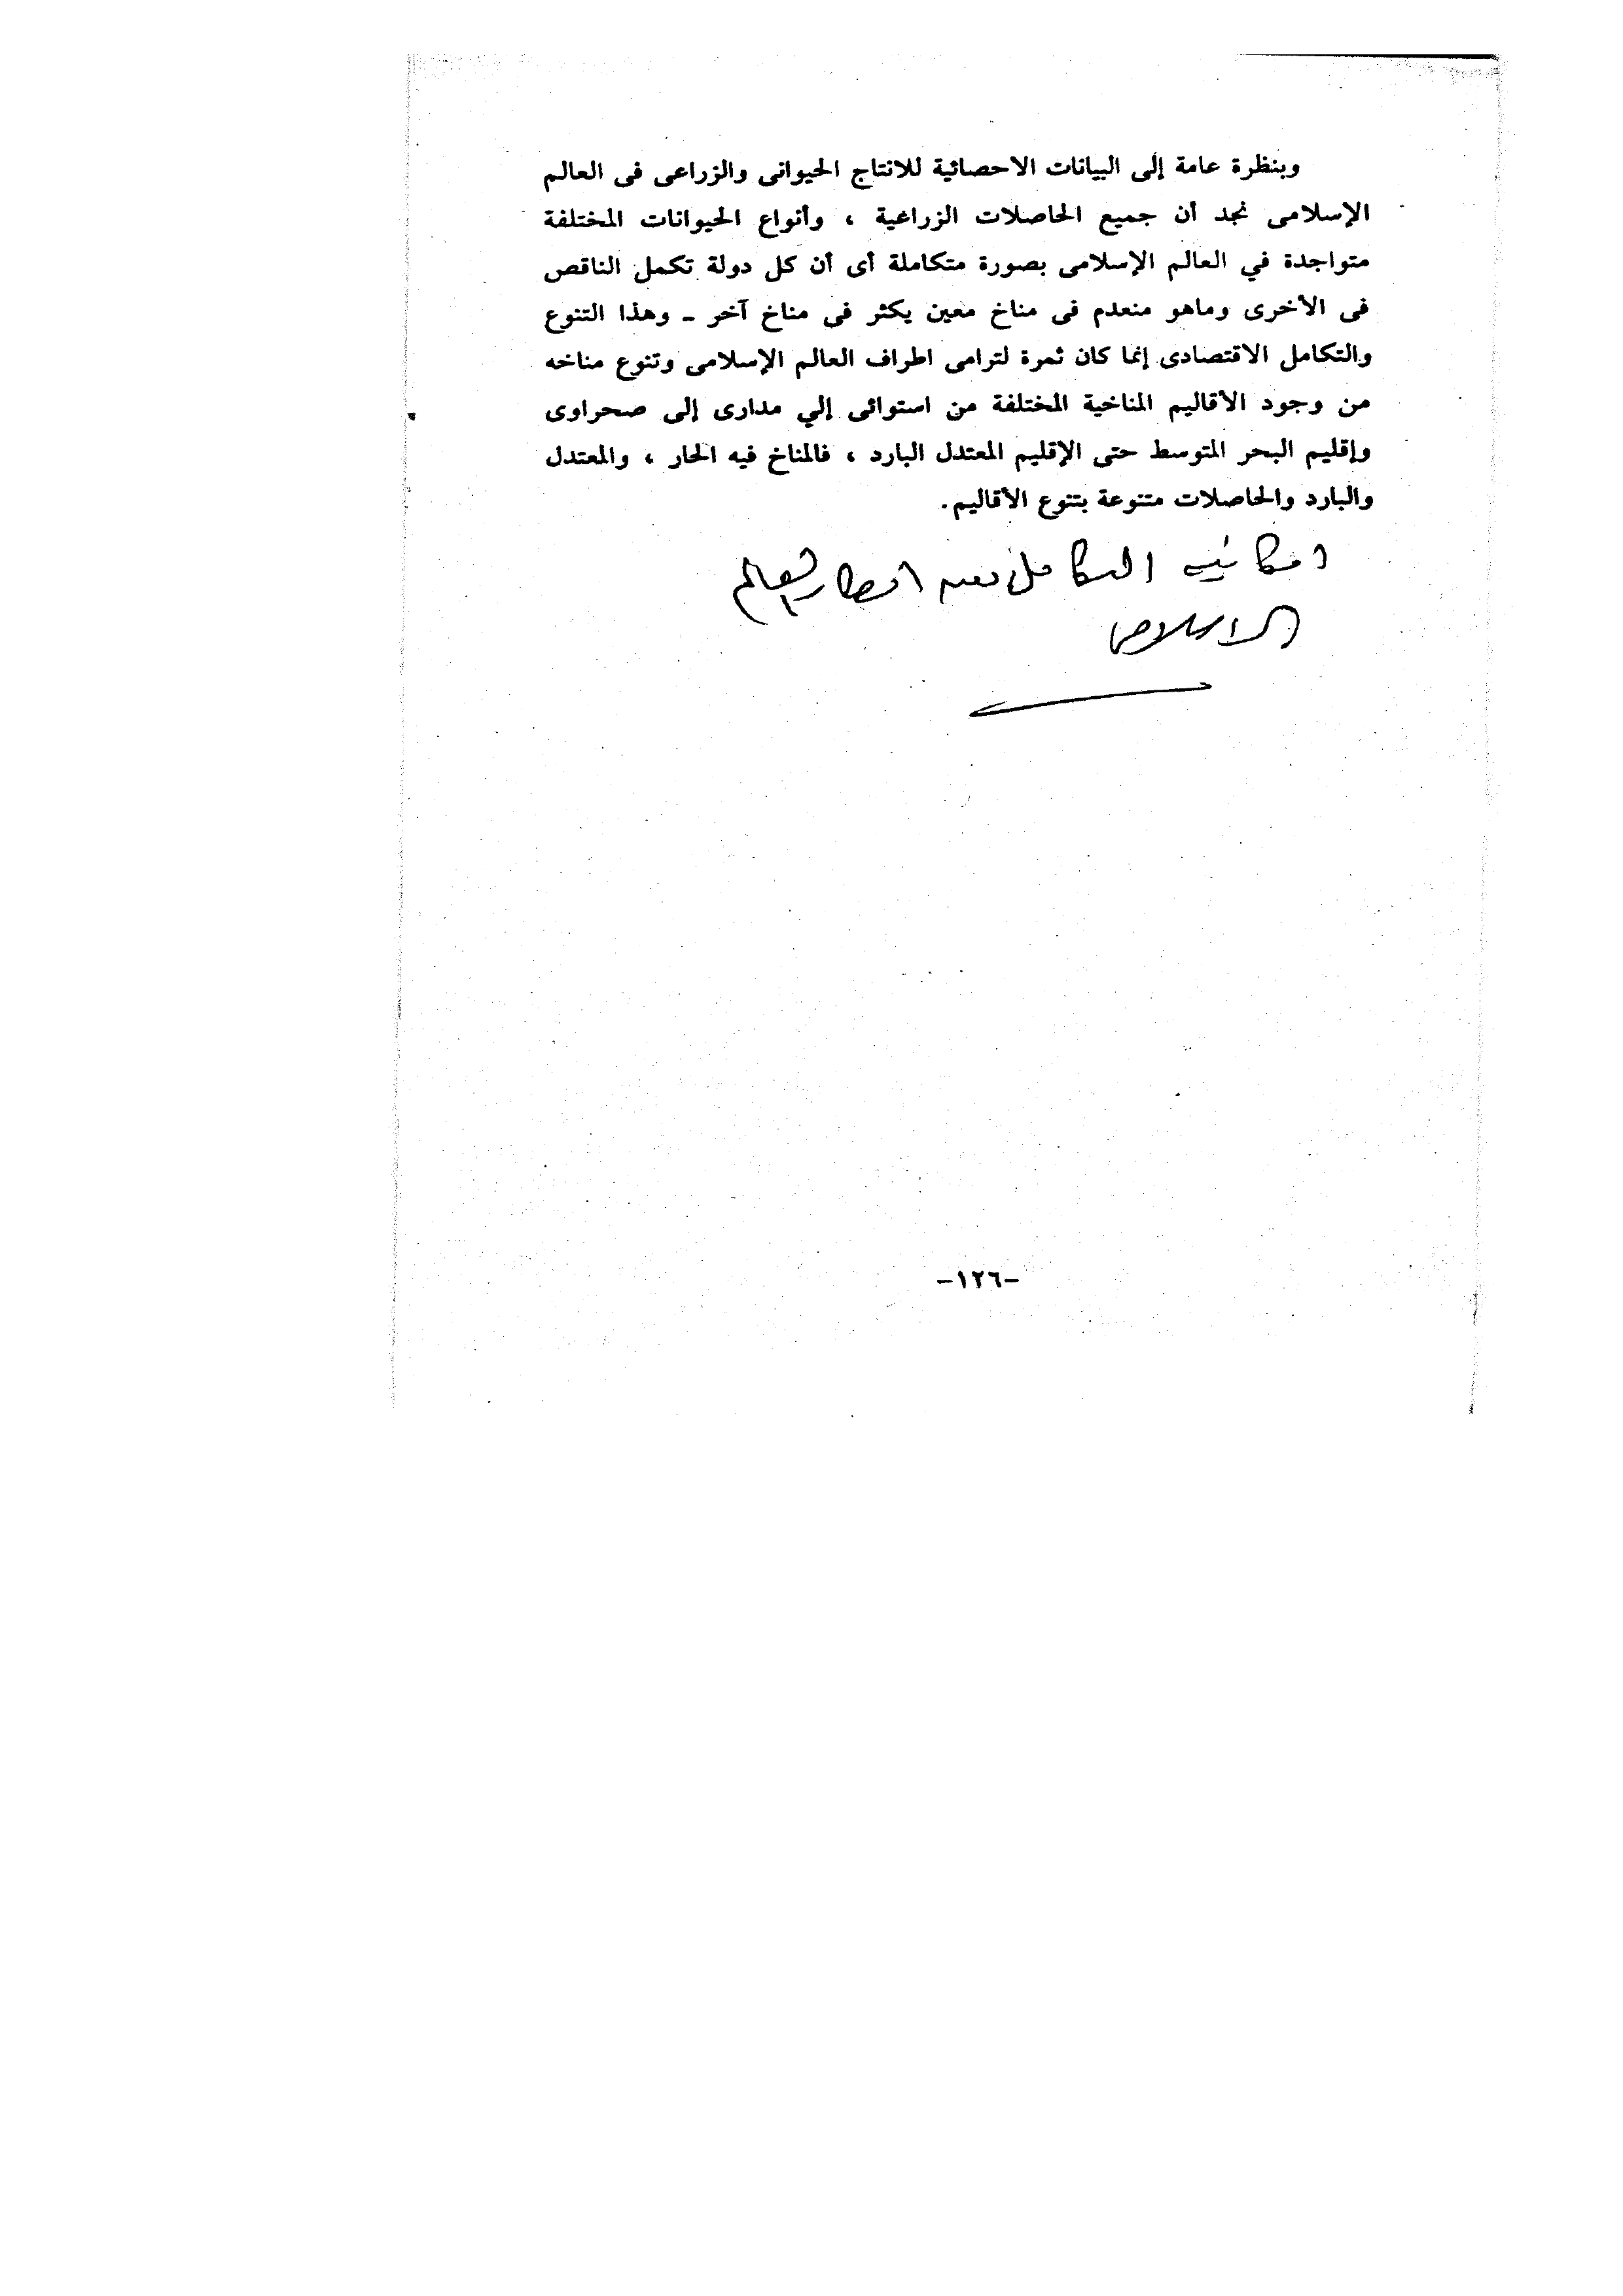 وبنظرة عامة إلى البيانات الاحصائية للانتاج الحيوانى والزراعى فى العالم
الإسلامى نجد أن جميع الحاصلات الزراعية ، وأنواع الحيوانات المختلفة
متواجدة في العالم الإسلامى بصورة متكاملة أى أن كل دولة تكمل الناقص
فى الأخرى وماهو منعدم فى مناخ معين يكثر فى مناخ آخر - وهذا التنوع
والتكامل الاقتصادى إنما كان ثمرة لترامى اطراف العالم الإسلامى وتنوع مناخه
من وجود الأقاليم المناخية المختلفة من استوائى إلي مدارى إلى صحراوى
وإقليم البحر المتوسط حتى الإقليم المعتدل البارد ، فالمناخ فيه الحار ، والمعتدل
والبارد والحاصلات متنوعة بتنوع الأقاليم.
امكانيه التكامل بين اقطار العالم
الاسلامى
-١٢٦-